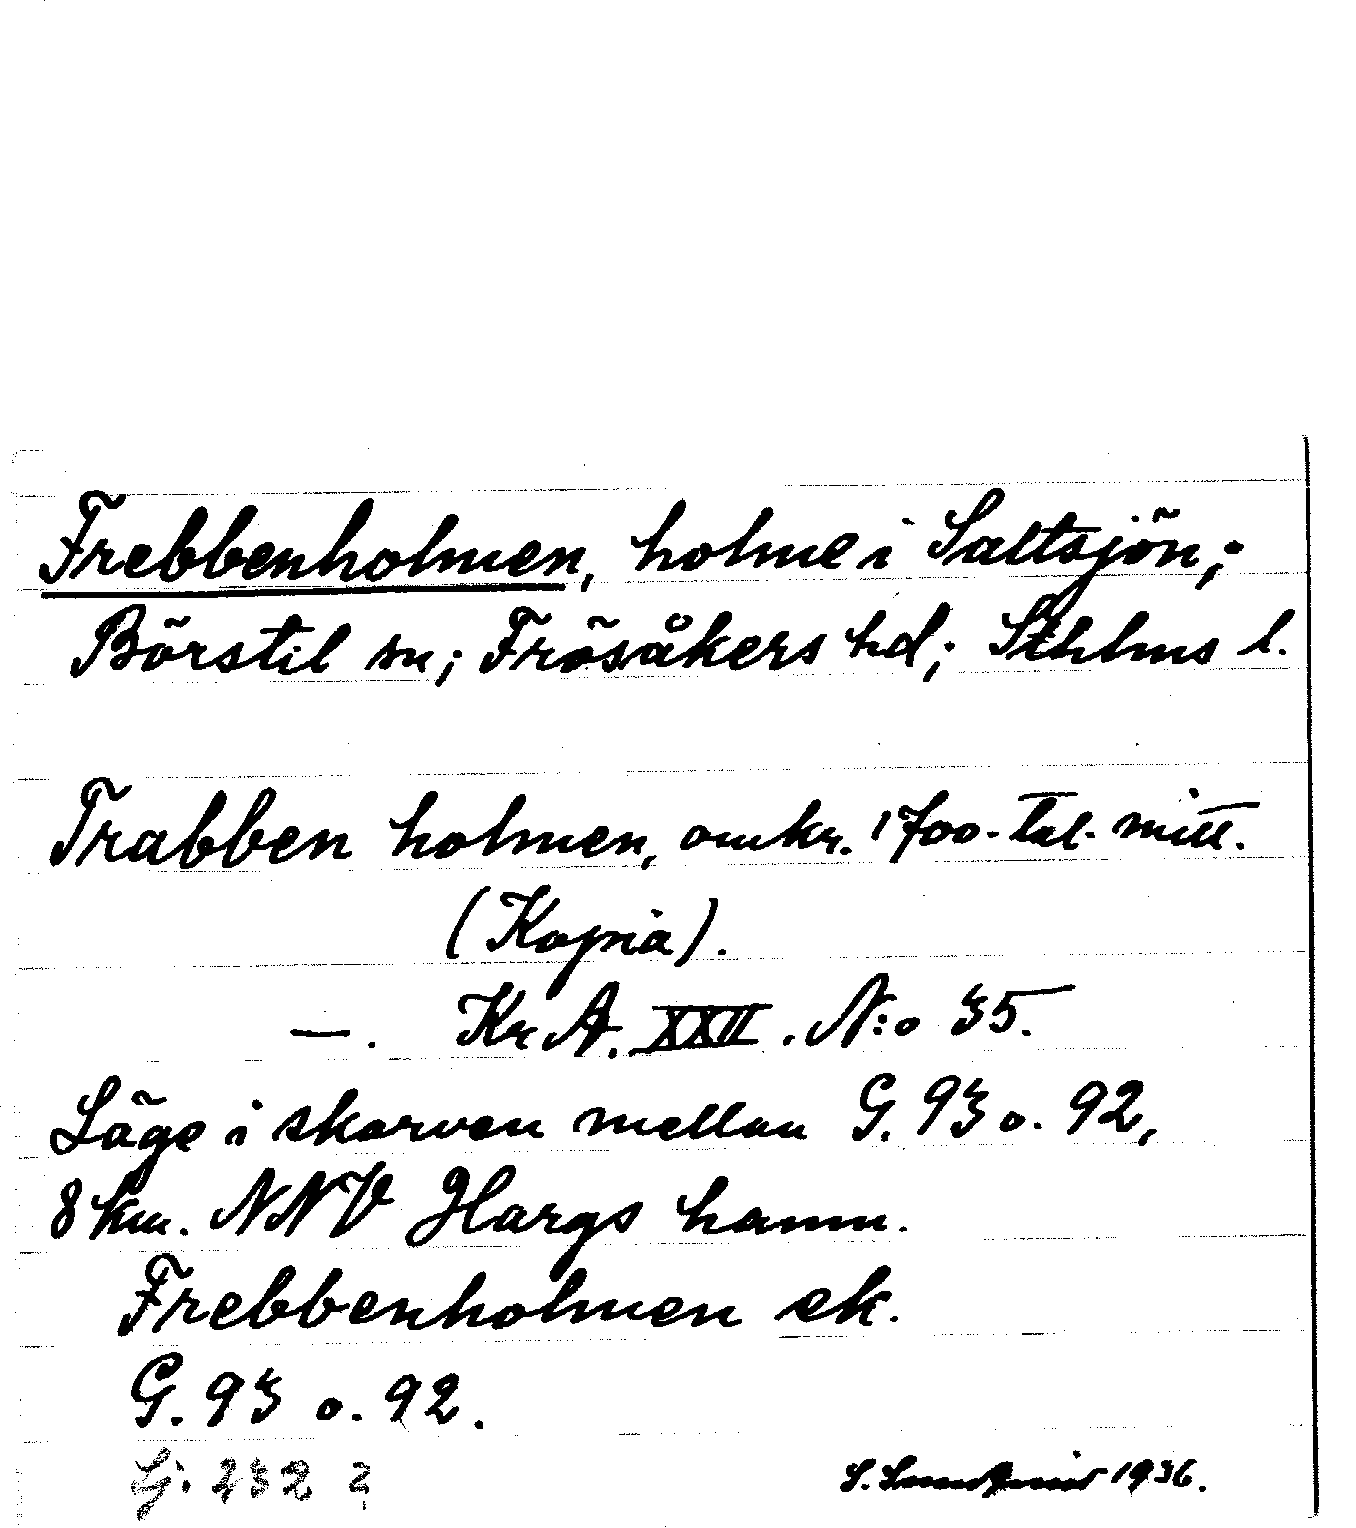 Frebbenholmen, holme i Saltsjön;
Börstil sn; Frösåkers hd; Sthlms l.
Trabben holmen, omkr. 1700-tal. mitt.
(Kopia).
—. Kr A. XXII. N:o 35.
Läge i skarven mellan G. 93 o. 92,
8 km. NNV Hargs hamn.
Frebbenholmen ek.
G. 93 o. 92.
Gj. 232 2
S. 1936.